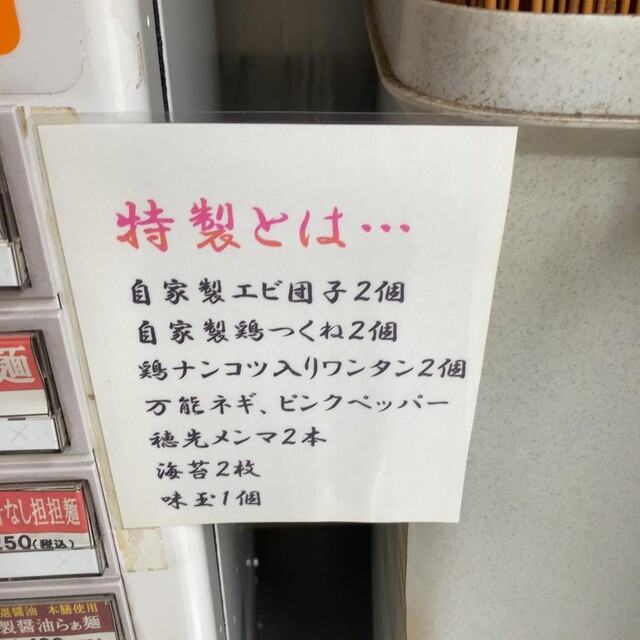 特製とは…
自家製エビ団子2個
自家製鶏つくね2個
鶏ナンコツ入りワンタン2個
万能ネギ、ピンクペッパー
穂先メンマ2本
海苔2枚
味玉1個
麺
なし担担麺
50(税込)
醤油 本膳使用
製醤油らぁ麺